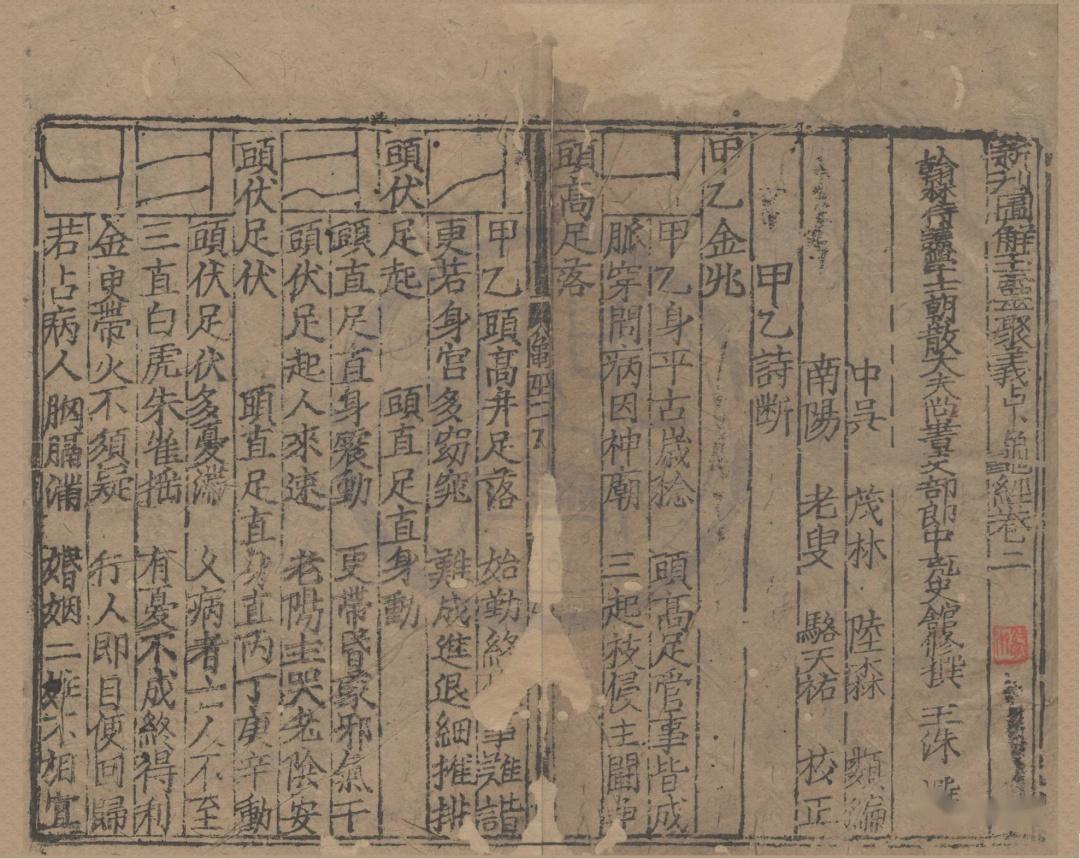 新刋圖解玉靈聚義占卜龜經卷二
翰林侍讀學士朝散大夫尚書吏部郎中充史館修撰 王洙
中吳 茂林 陸森 類編
南陽 老叟 駱天祐 校正
甲乙詩断
甲乙金兆
甲乙身平古歲稔 頭高足管事皆成
脈穿問病因神廟 三起枝侵主鬭
頭高足落
龜
甲乙頭高并足落 始勤終 難諧
更若身宫多窈窕 難成進退細推排
頭伏足起 頭直足直身動
頭直足直身襄動 更帶 家邪氣干
頭伏足起人來速 老陽主哭老陰安
頭伏足伏 頭直足直身直丙丁庚辛動
頭伏足伏多憂滯 父病者亡人不至
三直白虎朱雀搖 有憂不成終得利
金更帶火不須疑 行人即目便回歸
若占病人胸膈滿 婚姻二 不相宜